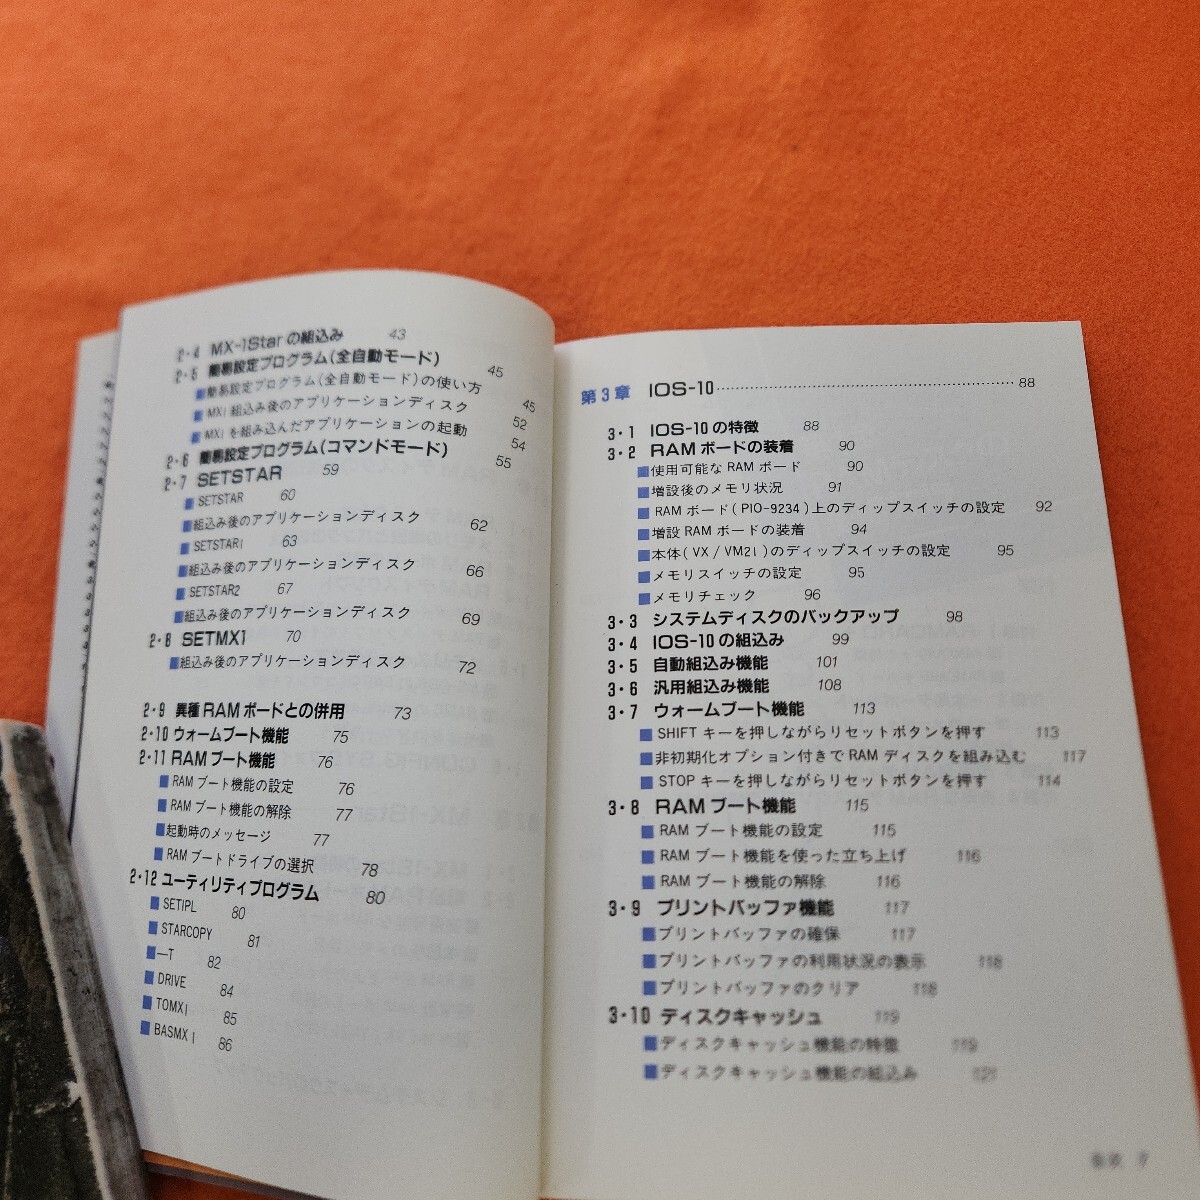 2・4 MX-1Star の組込み 43
2・5 簡易設定プログラム(全自動モード) 45
■簡易設定プログラム(全自動モード)の使い方 45
■MX1組込み後のアプリケーションディスク 52
■MX1を組み込んだアプリケーションの起動 54
2・6 簡易設定プログラム(コマンドモード) 55
2・7 SETSTAR 59
■SETSTAR 60
■組込み後のアプリケーションディスク 62
■SETSTAR1 63
■組込み後のアプリケーションディスク 66
■SETSTAR2 67
■組込み後のアプリケーションディスク 69
2・8 SETMX1 70
■組込み後のアプリケーションディスク 72
2・9 異種RAMボードとの併用 73
2・10 ウォームブート機能 75
2・11 RAMブート機能 76
■RAMブート機能の設定 76
■RAMブート機能の解除 77
■起動時のメッセージ 77
■RAMブートドライブの選択 78
2・12 ユーティリティプログラム 80
■SETIPL 80
■STARCOPY 81
■—T 82
■DRIVE 84
■TOMX1 85
■BASMX1 86
第3章 IOS-10 88
3・1 IOS-10の特徴 88
3・2 RAMボードの装着 90
■使用可能なRAMボード 90
■増設後のメモリ状況 91
■RAMボード(PIO-9234)上のディップスイッチの設定 92
■増設RAMボードの装着 94
■本体(VX/VM21)のディップスイッチの設定 95
■メモリスイッチの設定 95
■メモリチェック 96
3・3 システムディスクのバックアップ 98
3・4 IOS-10の組込み 99
3・5 自動組込み機能 101
3・6 汎用組込み機能 108
3・7 ウォームブート機能 113
■SHIFTキーを押しながらリセットボタンを押す 113
■非初期化オプション付きでRAMディスクを組み込む 117
■STOPキーを押しながらリセットボタンを押す 114
3・8 RAMブート機能 115
■RAMブート機能の設定 115
■RAMブート機能を使った立ち上げ 116
■RAMブート機能の解除 116
3・9 プリントバッファ機能 117
■プリントバッファの確保 117
■プリントバッファの利用状況の表示 118
■プリントバッファのクリア 118
3・10 ディスクキャッシュ 119
■ディスクキャッシュ機能の特徴 119
■ディスクキャッシュ機能の組込み 121